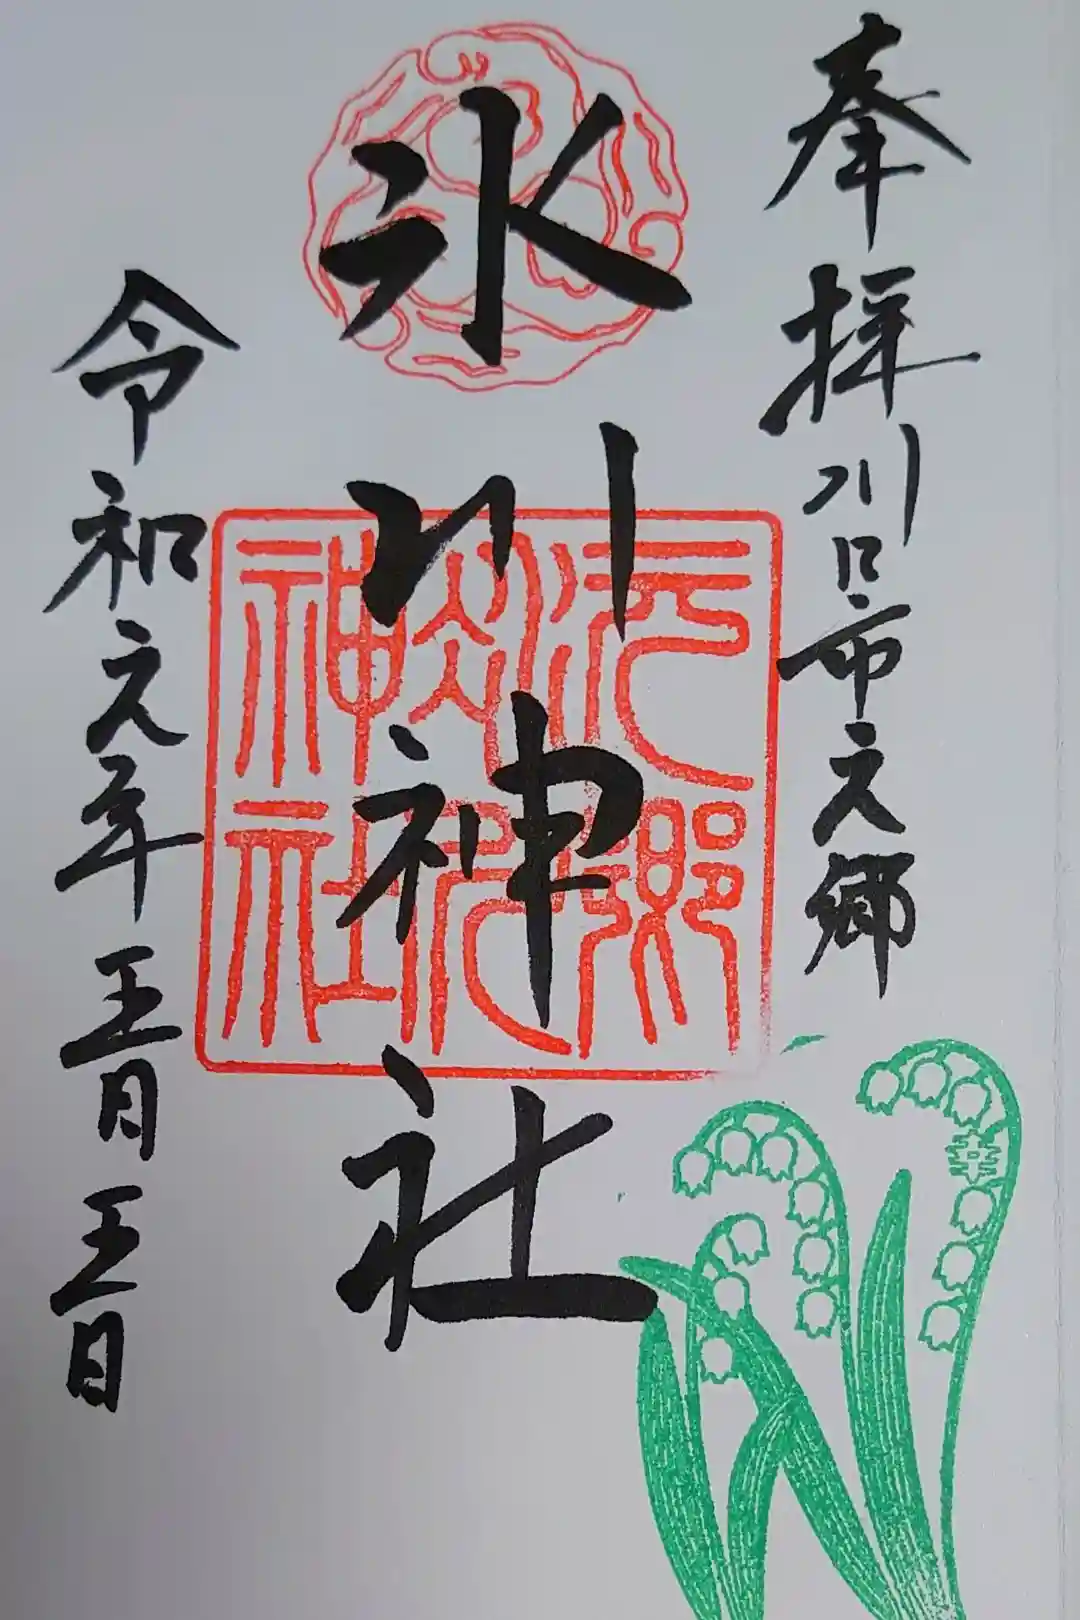 奉拝
川口市元郷
氷川神社
令和元年五月五日
元郷
氷川
神社
幸